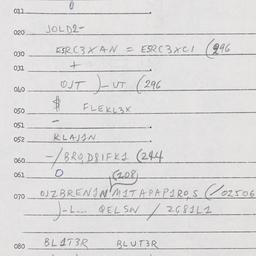 011 0
020 JOLD2-
030 ESRC3XAN = ESRC3XC1 (296
031 +
040 OJT )-UT (296
050 $ FLEKL3X
051 -
052 KLAJ1N
060 -/BRQD8IFK1 (244
061 0 (208)
070 OJZBRENJN M1TAPAP1R0,S (/02506
)-L... QELSN / 2G81L1
080 BL1T3R BLUT3R